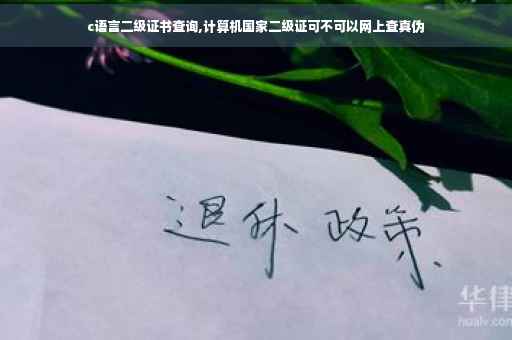 c语言二级证书查询,计算机国家二级证可不可以网上查真伪
退休 政策
华律
hualv.com